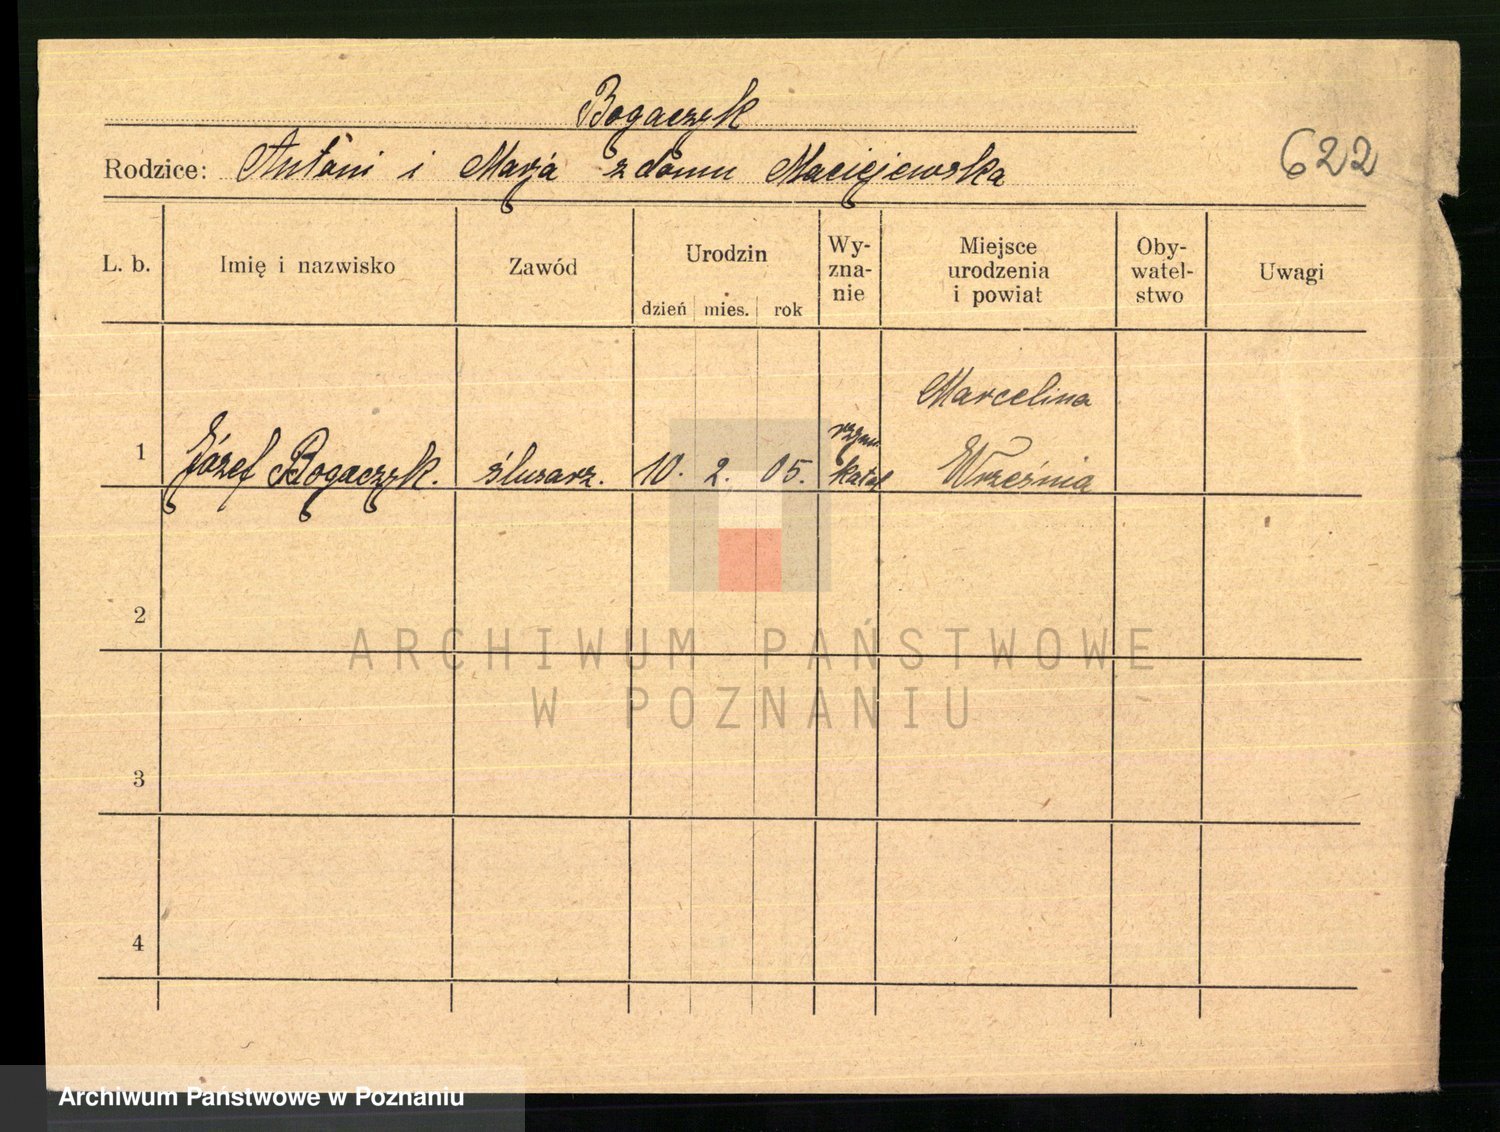 Bogaczyk
Rodzice: Antoni i Marja z domu Maciejewska
622
L. b.
Imię i nazwisko
Zawód
Urodzin
dzień mies. rok
Wy-
zna-
nie
Miejsce
urodzenia
i powiat
Oby-
watel-
stwo
Uwagi
1
Józef Bogaczyk.
ślusarz.
10. 2. 05.
rzym.
katol.
Marcelina
Września
2
3
4
ARCHIWUM PAŃSTWOWE
W POZNANIU
Archiwum Państwowe w Poznaniu